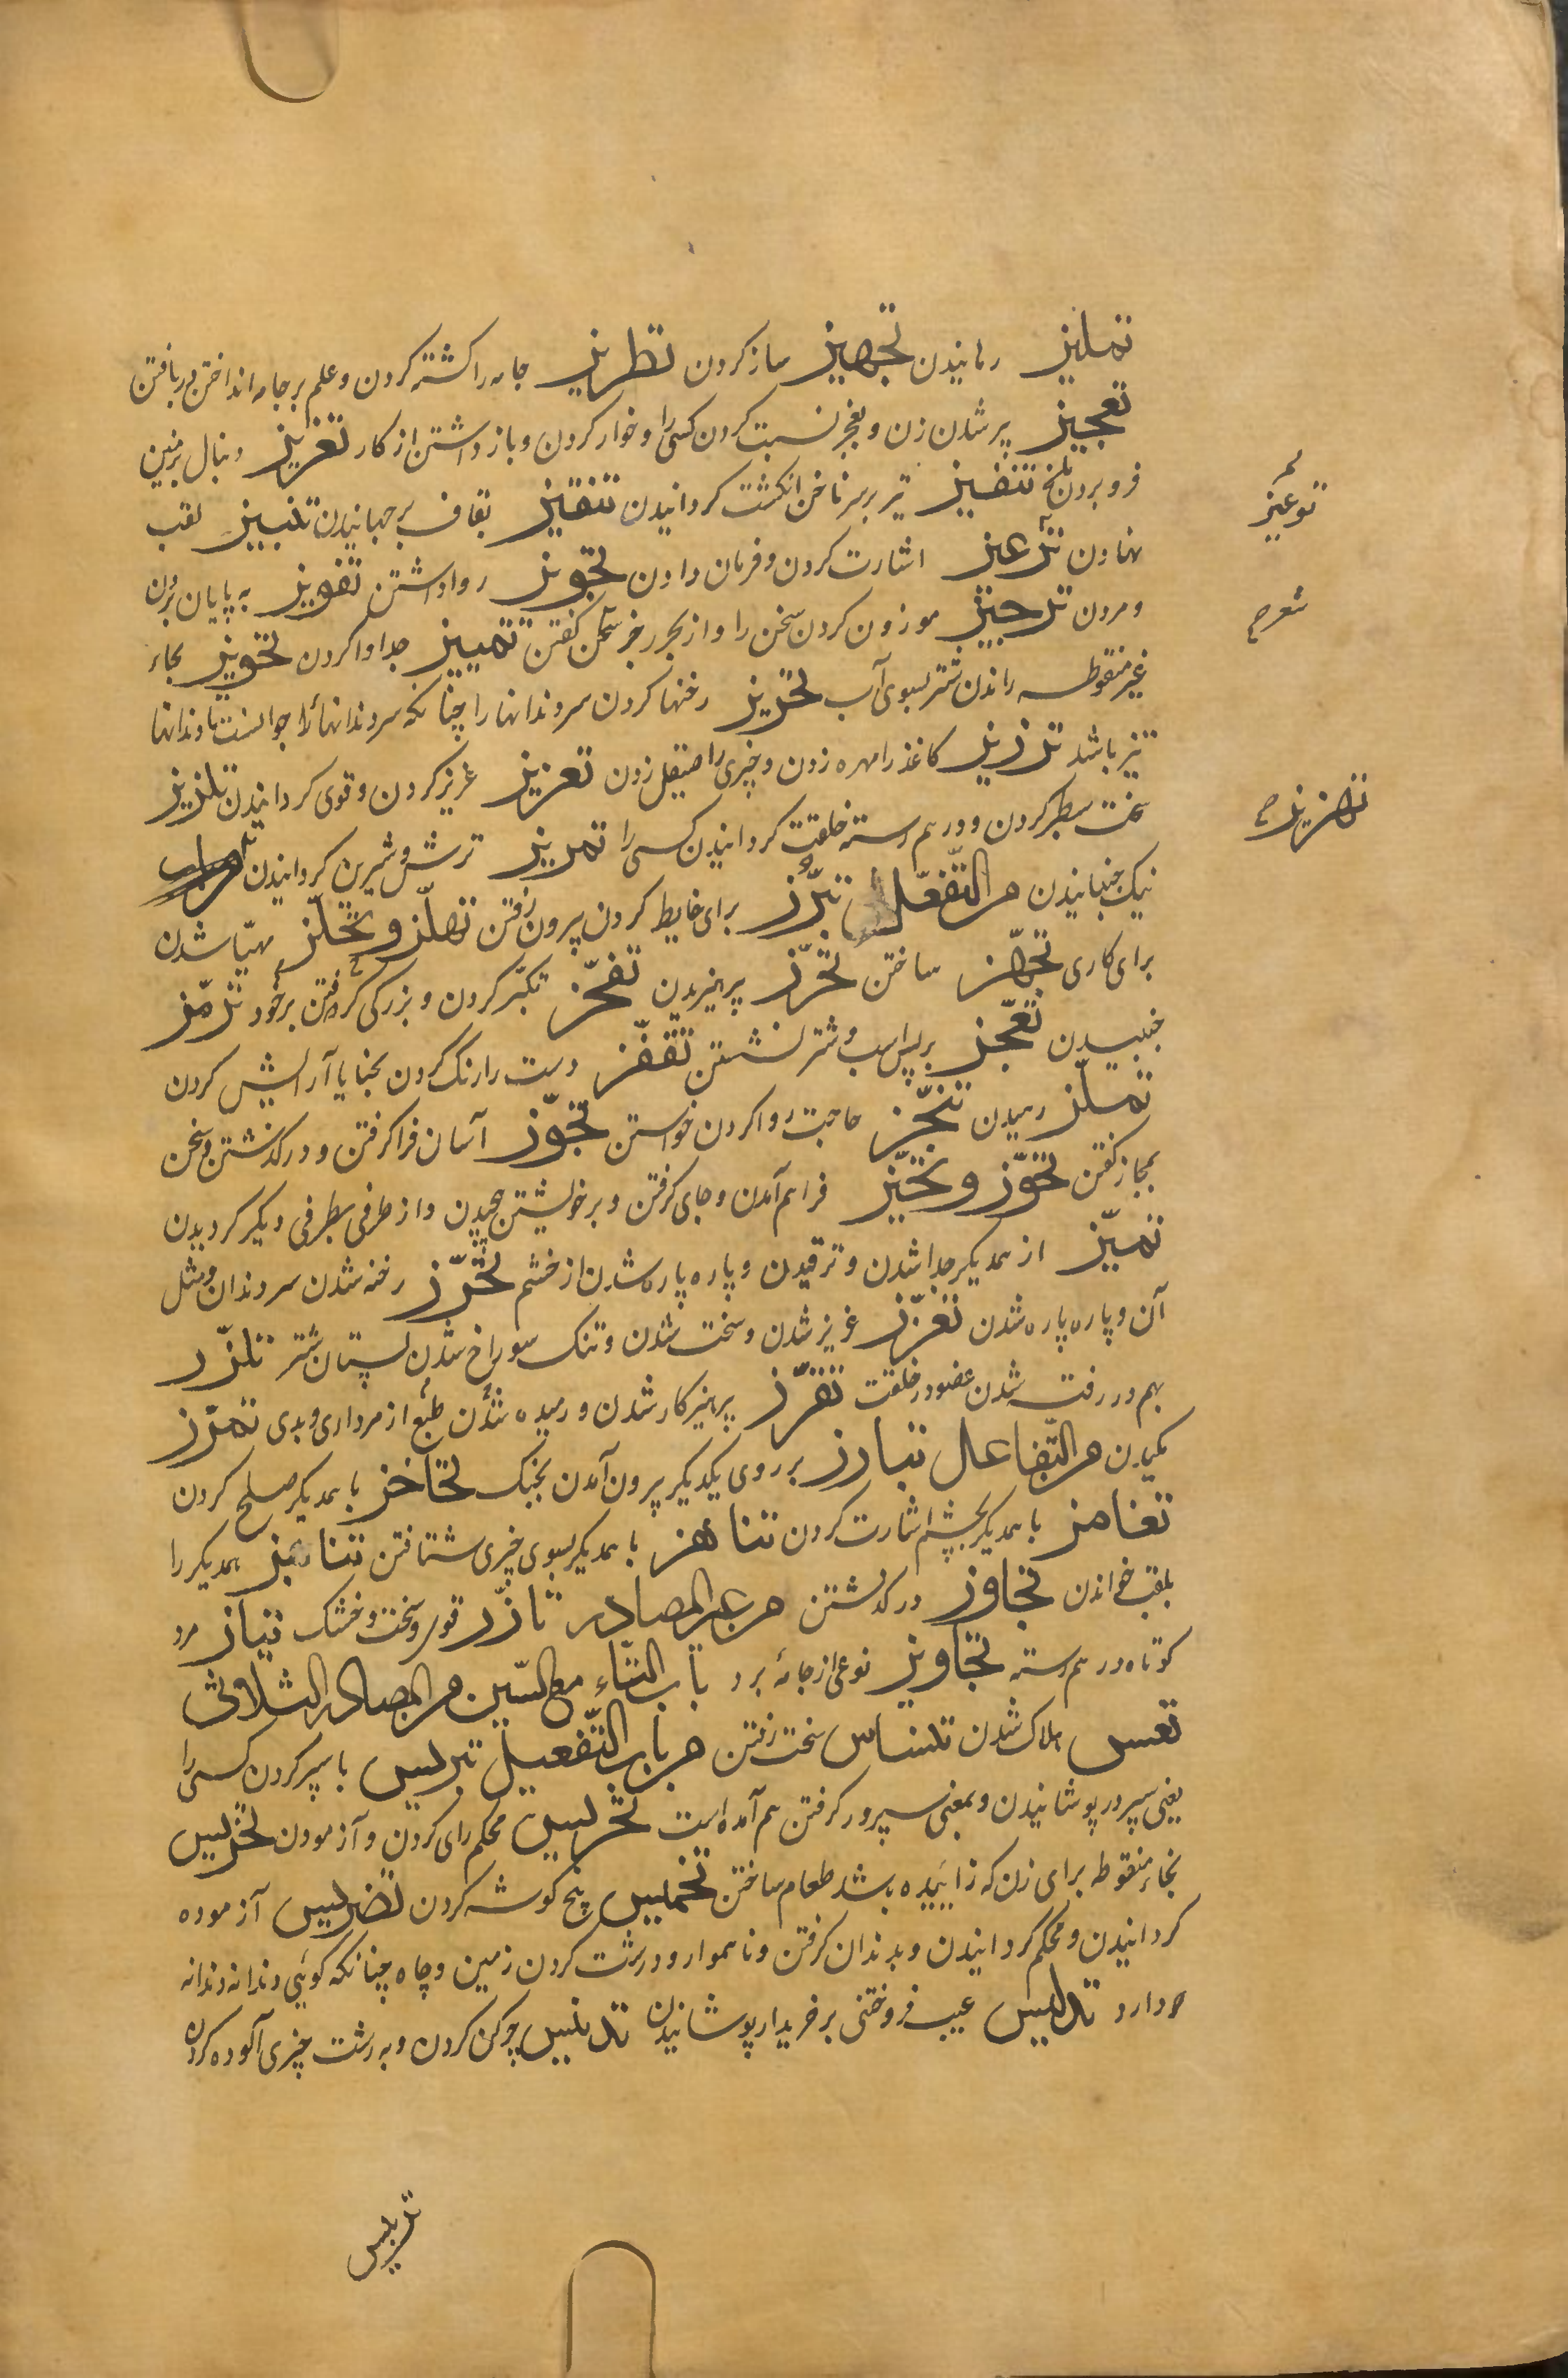 تملیز رهانیدن تجهیز ساز کردن تطریز جامه را کشته کردن و علم بر جامه انداختن در بافتن
تعجیز پیر شدن زن و بعجز نسبت کردن کسی را و خوار کردن و باز داشتن از کار تغریز دنبال بزمین
فرو بردن ملخ تنفیز تیر بر سر ناخن انکشت کردانیدن تنقیز بقاف بر جهانیدن تنبیز لقب
نهادن اشارت کردن و فرمان دادن تجویز روا داشتن تفویز به پایان بردن
و مردن ترجیز موزون کردن سخن را و از بحر رجز سخن کفتن تمییز جدا وا کردن تحویز بحاء
غیر منقوطه راندن شتر بسوی آب تحزیز رخنها کردن سر دندانها را چنانکه سر دندانهاء جوانست تا دندانها
تیز باشد ترزیز کاغذ را مهره زدن و چیزی را صیقل زدن تعزیز عزیز کردن و قوی کردانیدن تلزیز
سخت سطبر کردن و در هم رسته خلقت کردانیدن کسی را تمزیز ترش و شیرین کردانیدن
نیک جنبانیدن من التفعّل تبرّز برای غایط کردن بیرون رفتن تهلّز و تحلّز مهیّا شدن
برای کاری تجهّز ساختن تحرّز پرهیزیدن تفخّز تکبّر کردن و بزرکی کرفتن بر خود ترمّز
جنبیدن تعجّز بر پس اسب و شتر نشستن تقفّز دست را رنک کردن بحنا یا آرایش کردن
تملّز رهیدن تنجّز حاجت روا کردن خواستن تجوّز آسان فرا کرفتن و در کذشتن و سخن
بمجاز کفتن تحوّز و تحیّز فراهم آمدن و جای کرفتن و بر خویشتن پیچیدن و از طرفی بطرفی دیکر کردیدن
تمیّز از همدیکر جدا شدن و ترقیدن و پاره پاره شدن از خشم تحزّز رخنه شدن سر دندان و مثل
آن و پاره پاره شدن تعزّز عزیز شدن و سخت شدن و تنک سوراخ شدن پستان شتر تلزّز
بهم در رفت شدن عضو در خلقت تقزّز پرهیزکار شدن و رمیده شدن طبع از مرداری و بدی تمزّز
مکیدن من التّفاعل تبارز بر روی یکدیکر بیرون آمدن بجنک تحاجز با همدیکر صلح کردن
تغامز با همدیکر بچشم اشارت کردن تناهز با همدیکر بسوی چیزی شتافتن تنابز همدیکر را
بلقب خواندن تجاوز در کذشتن من غیر المصادر تازّز قوی و سخت و خشک تیاز مرد
کوتاه در هم رسته تجاویز نوعی از جامهٔ برد باب التّاء مع السّین من المصادر الثلاثی
تعس هلاک شدن تلسّاس سخت رفتن من باب التّفعیل تتریس با سپر کردن کسی را
یعنی سپر در پوشانیدن و بمعنی سپر ور کرفتن هم آمده است تجریس محکم رای کردن و آزمودن تخریس
بخاء منقوطه برای زن که زاییده باشد طعام ساختن تخمیس پنج کوشه کردن تضریس آزموده
کردانیدن و محکم کردانیدن و بدندان کرفتن و ناهموار و درشت کردن زمین و چاه چنانکه کویی دندانه دندانه
دارد تدلیس عیب فروختنی بر خریدار پوشانیدن تدنیس چرکن کردن و به زشت چیزی آلوده کردن
توعیز
شعر ح
تهزیز ح
تربیس